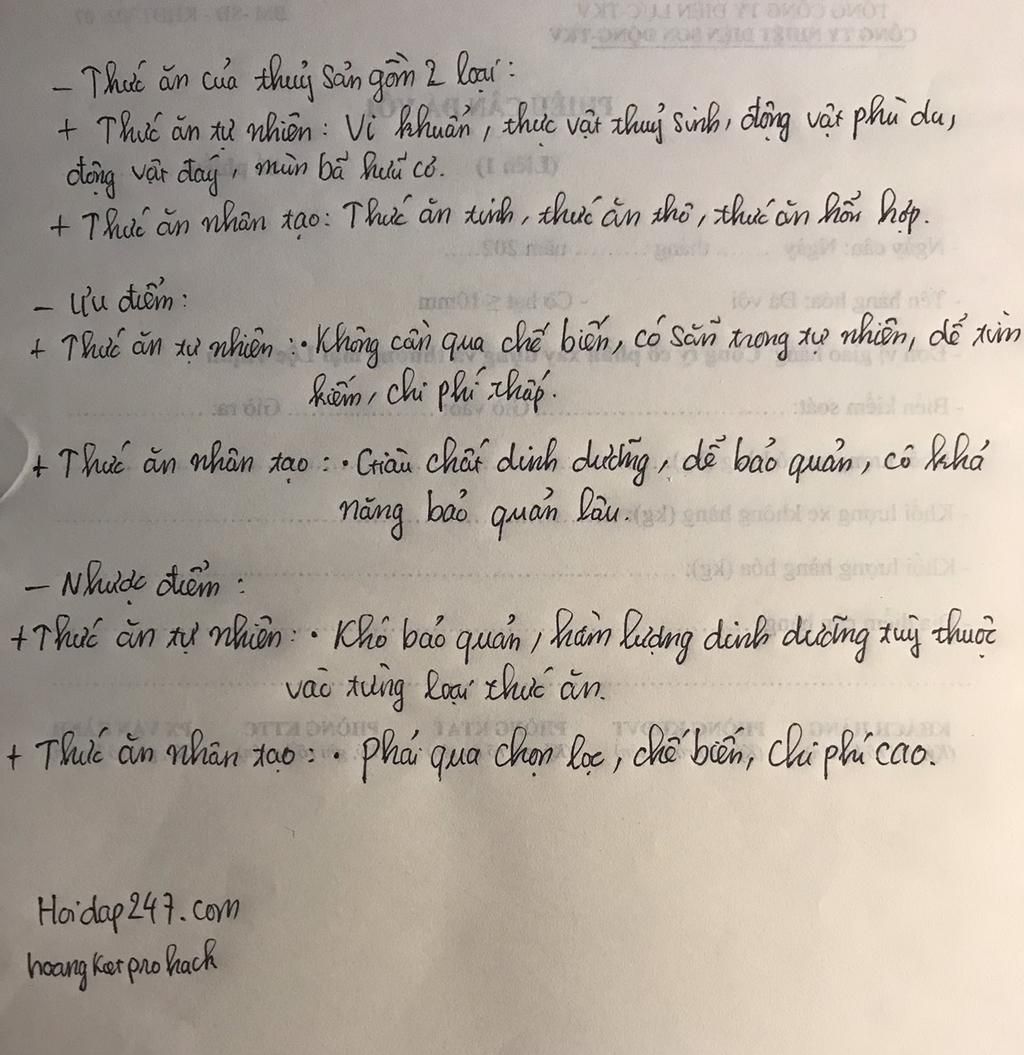 - Thức ăn của thuỷ sản gồm 2 loại:
+ Thức ăn tự nhiên: Vi khuẩn, thực vật thuỷ sinh, động vật phù du,
động vật đáy, mùn bã hữu cơ.
+ Thức ăn nhân tạo: Thức ăn tinh, thức ăn thô, thức ăn hỗn hợp.
- Ưu điểm:
+ Thức ăn tự nhiên: • Không cần qua chế biến, có sẵn trong tự nhiên, dễ tìm
kiếm, chi phí thấp.
+ Thức ăn nhân tạo: • Giàu chất dinh dưỡng, dễ bảo quản, có khả
năng bảo quản lâu.
- Nhược điểm:
+ Thức ăn tự nhiên: • Khó bảo quản, hàm lượng dinh dưỡng tuỳ thuộc
vào từng loại thức ăn.
+ Thức ăn nhân tạo: • Phải qua chọn lọc, chế biến, chi phí cao.
Hoidap247.com